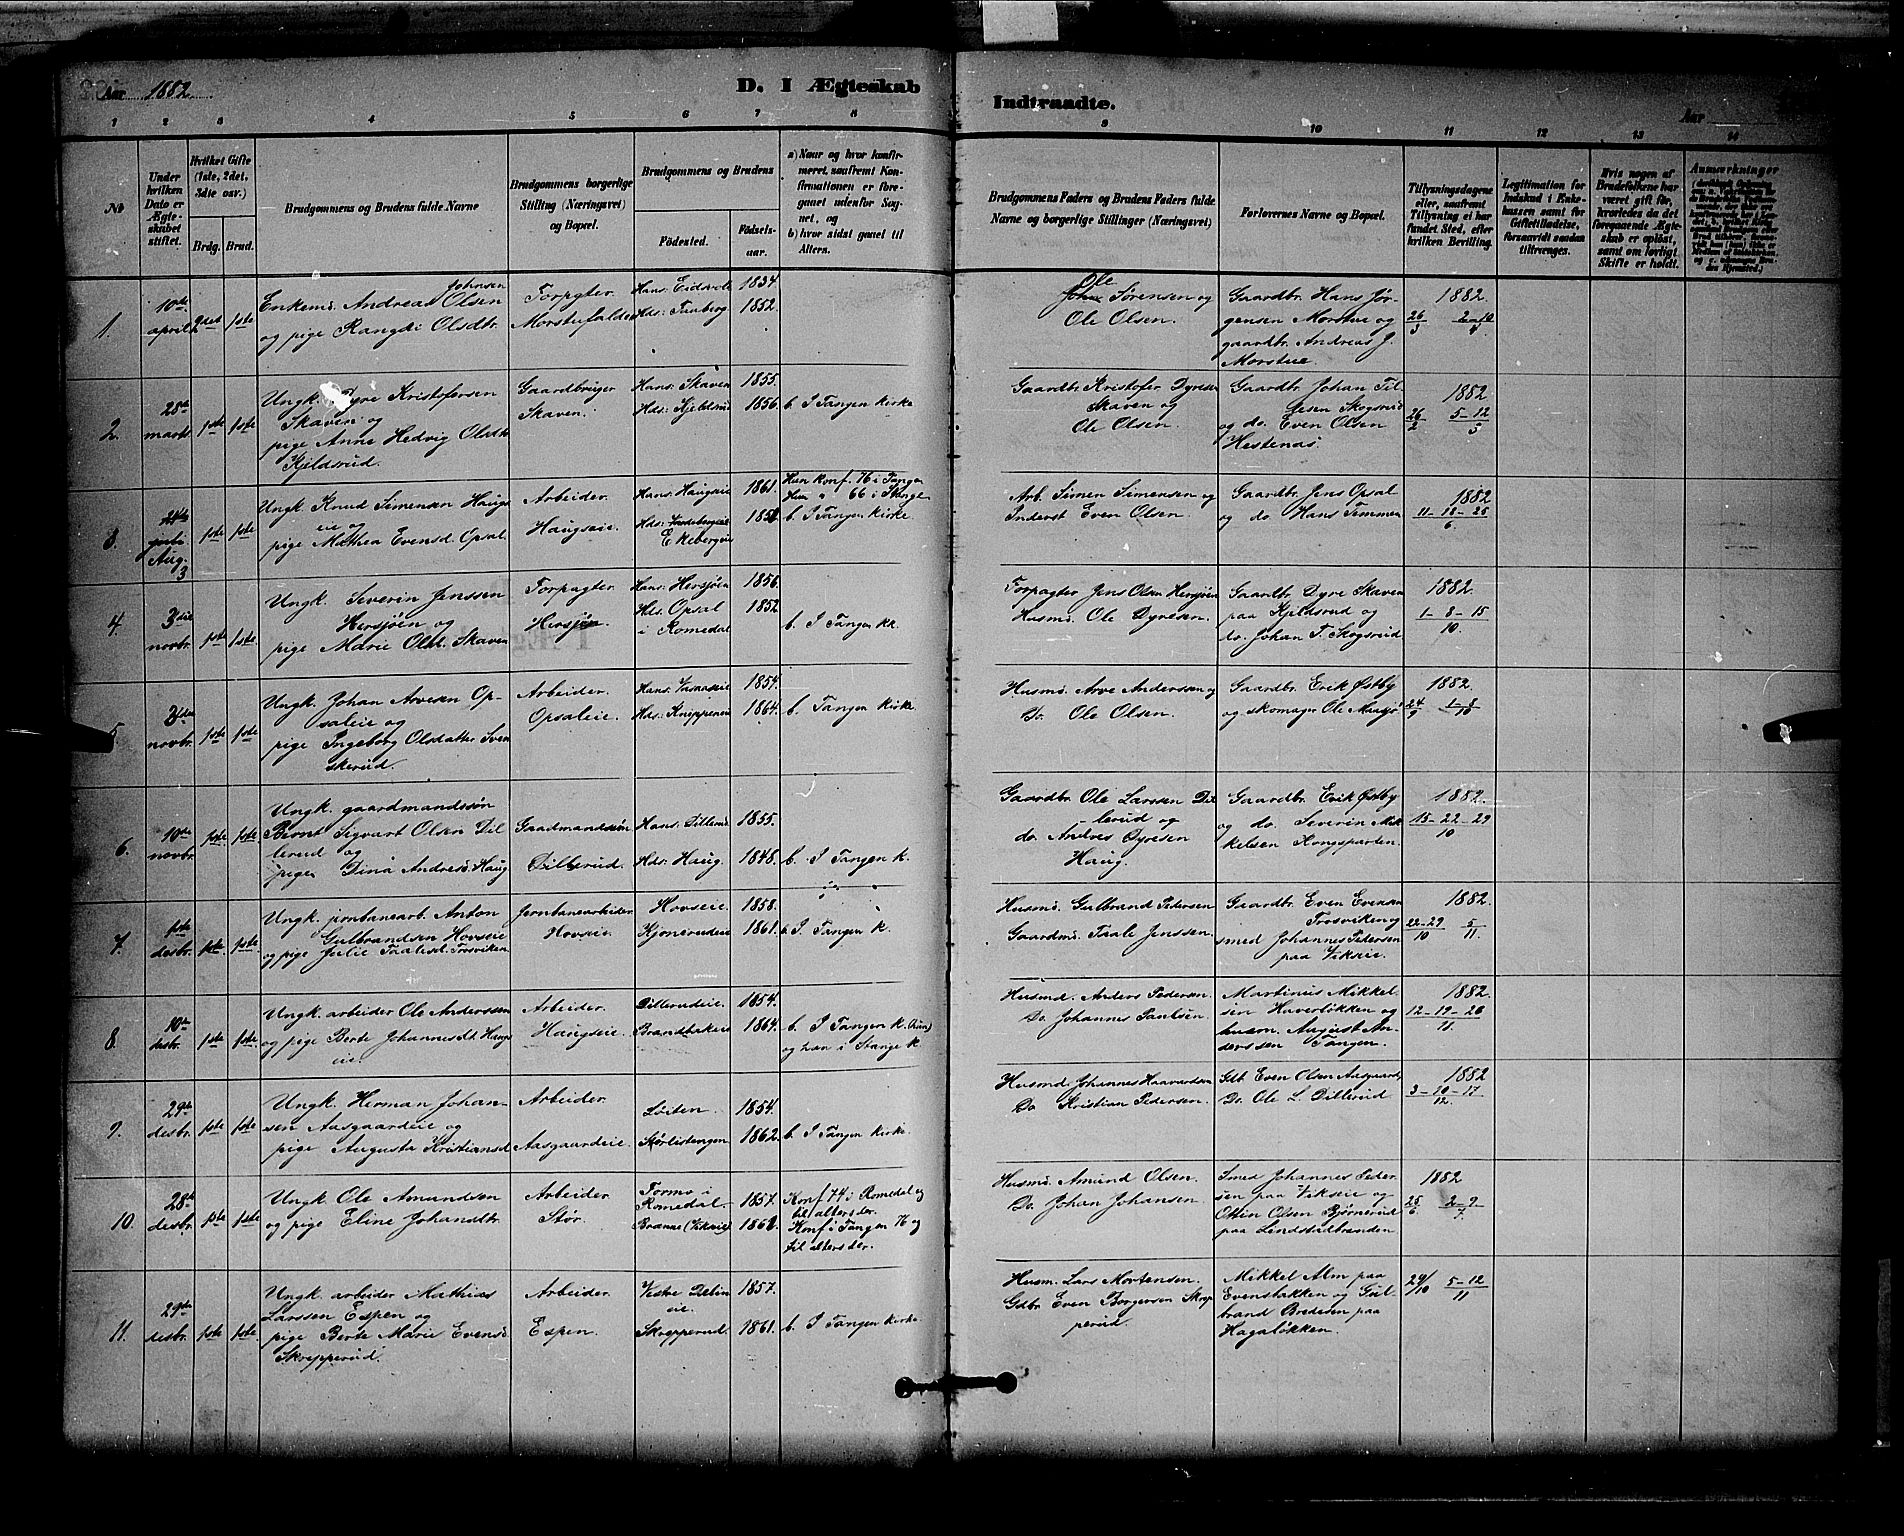 Aar 1882.
D. I Ægteskab
Indtraadte.
Aar
1 2 3 4 5 6 7 8 9 10 11 12 13 14
No
Under hvilken Dato er Ægteskabet stiftet.
Hvilket Gifte (1ste, 2det, 3die osv.)
Brdg. Brud.
Brudgommens og Brudens fulde Navne
Brudgommens borgerlige Stilling (Næringsvei) og Bopæl.
Brudgommens og Brudens
Födested.
Födselsaar.
a) Naar og hvor konfirmeret, saafremt Konfirmationen er foregaaet udenfor Sognet, og
b) hvor sidst gaaet til Altern.
Brudgommens Faders og Brudens Faders fulde Navne og borgerlige Stillinger (Næringsvei)
Forlovernes Navne og Bopæl.
Tillysningsdagene eller, saafremt Tillysning ei har fundet Sted, efter hvilken Bevilling.
Legitimation for Indskud i Enkekassen samt for Giftetilladelse, forsaavidt saadan tiltrænges.
Hvis nogen af Brudefolkene har været gift för, hvorledes da det foregaaende Ægteskab er oplöst, samt om lovligt Skifte er holdt.
Anmærkninger
1. 10de april 2det 1ste
Enkem. Andreas Johnsen Olsen
og pige Rangdi Olsdtr.
Forpagter
Morstufalder
Hans: Eidsvold 1834
Hds: Faaberg 1852.
Ole Sörensen og
Ole Olsen.
Gaardbr. Hans Jör-
gensen Morstue og
gaardbr. Andreas J.
Morstue
1882.
26/3 2-10/4
2. 28de marts 1ste 1ste
Ungk. Dyre Kristofersen
Skaven og
pige Anne Hedvig Olsdtr
Kjeldsrud.
Gaardbruger
Skaven.
Hans: Skaven 1855.
Hds: Kjeldsrud 1856.
b. I Tangen Kirke
Gaardbr. Kristofer Dyresen
Skaven og
Ole Olsen.
Gaardbr. Johan Til-
lesen Skogsrud
og do. Even Olsen
Hestenæs.
1882
26/2 5-12/3
3. Aug. 3 1ste 1ste
Ungk Knud Simensen Haugs
eie og
pige Mathea Evensd. Opsal
Arbeider
Haugseie.
Hans: Haugseie 1861.
Ekebergeie
Han konf. 76 i Tangen
Hun " 66 i Stange
b. I Tangen Kirke
Arb. Simen Simensen og
Inderst Even Olsen.
Gaardbr. Jens Opsal
og do. Hans Temmen
1882
11-18-25/6
4. 3die novbr. 1ste 1ste
Ungk. Severin Jenssen
Hersjöen og
pige Marie Olsdt. Skaven
Forpagter
Hersjöen.
Hans: Hersjöen 1856.
Hds: Opsal 1852
i Romedal
b. I Tangen Kk.
Forpagter Jens Olsen Hersjöen
Husm. Ole Dyresen.
Gaardbr. Dyre Skaven
paa Kjeldsrud og
do. Johan T. Skogsrud
1882.
1-8-15/10.
5. 3die novbr. 1ste 1ste
Ungk. Johan Arvesen Op-
saleie og
pige Ingeborg Olsdatter Sven
skerud.
Arbeider.
Opsaleie.
1854.
Hds: Knippeneie 1864.
b. Tangen Kirke
Husm. Arve Andersen og
Do. Ole Olsen.
Gaardbr. Erik Østby
og skomager Ole
1882.
24/9 1-8/10
6. 10de novbr. 1ste 1ste
Ungk. gaardmandssön
Bernt Sigvart Olsen Dil
lerud og
pigen Dina Andresd. Haug
Gaardmandssön
Dillerud.
Hans: Dillerud 1855.
Hds: Haug. 1848.
b. I Tangen K.
Gaardbr. Ole Larssen Dil
lerud og
do. Andres Dyresen
Haug.
Gaardbr. Erik Østby
og do. Severin Mik
kelsen Kongsparten.
1882.
15-22-29/10
7. 1ste desbr. 1ste 1ste
Ungk. jernbanearb. Anton
Gulbrandsen Hovseie
og pige Julie Taalesd. Trosviken
Jernbanearbeider
Hovseie.
Hovseie. 1858.
Kjonerudeie 1861.
b. I Tangen K.
Husm. Gulbrand Pedersen
Gaardm. Taale Jenssen.
Gaardbr. Even Evensen
Trosviken og
smed Johannes Pedersen
paa Vikseie.
1882
22-29/10 5/11.
8. 10de desbr. 1ste 1ste
Ungk. arbeider Ole Anderssen
og pige Berte Johannesdt. Haugs
eie.
Arbeider.
Haugseie
Dillerudeie. 1854.
Brandbakeie 1864.
b. I Tangen K. (hun)
og han i Stange K.
Husmd. Anders Pedersen.
Do. Johannes Paulsen.
Martinus Mikkel
sen Haverlökken og
husm. August An
derssen Tangen.
1882.
12-19-26/11.
9. 29de desbr. 1ste 1ste
Ungk. Herman Johan-
sen Aasgaardeie og
pige Augusta Kristiansd
Arbeider
Aasgaardeie.
Löiten. 1854.
Störlistengen 1862.
b. I Tangen Kirke.
Husmd. Johannes Haavardsen
Do Kristian Pedersen.
Gdb. Even Olsen Aasgaard,
Do. Ole L. Dillerud.
1882
3-10-17/12.
10. 28de desbr. 1ste 1ste
Ungk. Ole Amundsen
og pige Eline Johandtr.
Arbeider
Stör.
Tormo i Romedal. 1857.
(Vikseie)
Konf 74 i Romedal og
til alters der.
Konf i Tangen 76 og
til alters der.
Husm. Amund Olsen.
Do. Johan Johansen.
Smed Johannes Peder
sen paa Vikseie og
Ottin Olsen Björnerud
paa Lindstadbranden
1882
25/6 2-9/7.
11. 29de desbr. 1ste 1ste
Ungk. arbeider Mathias
Larssen Espen og
pige Berte Marie Evensd.
Skrepperud.
Arbeider.
Espen.
1857.
Skrepperud. 1861.
b. I Tangen Kirke.
Husm. Lars Mortensen.
Gdbr. Even Borgersen Skrep
perud.
Mikkel Alm paa
Evenstakken og Gul-
brand Bredesen paa
Hagalökken.
29/10 5-12/11